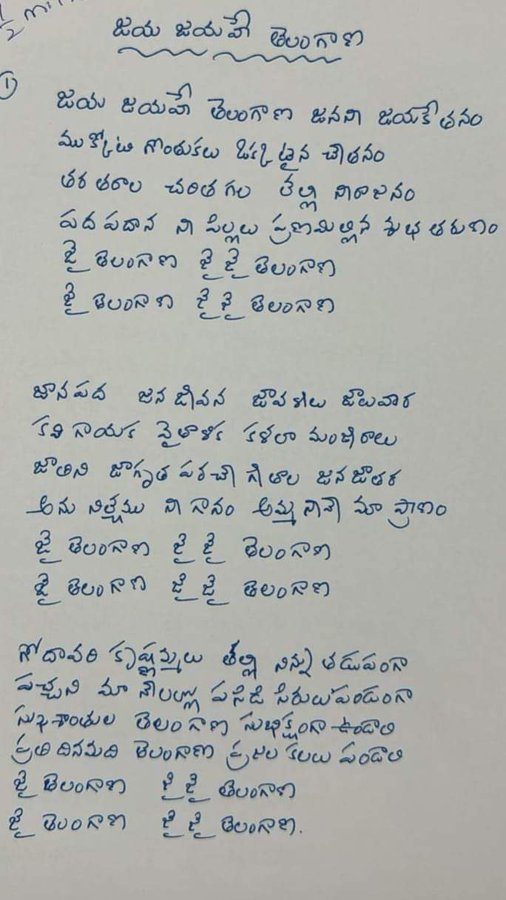 జయ జయహే తెలంగాణ
1
జయ జయహే తెలంగాణ జనని జయకేతనం
ముక్కోటి గొంతుకలు ఒక్కటైన చేతనం
తరతరాల చరితగల తల్లి నీరాజనం
పదపదాన నీ పిల్లలు ప్రణమిల్లిన శుభ తరుణం
జై తెలంగాణ జై జై తెలంగాణ
జై తెలంగాణ జై జై తెలంగాణ
జానపద జన జీవన జావళీలు జాలువార
కవి గాయక వైతాళిక కళలా మంజీరాలు
జాతిని జాగృత పరచే గీతాల జన జాతర
అను నిత్యము నీ గానం అమ్మ నీవే మా ప్రాణం
జై తెలంగాణ జై జై తెలంగాణ
జై తెలంగాణ జై జై తెలంగాణ
గోదావరి కృష్ణమ్మలు తల్లి నిన్ను తడుపంగా
పచ్చని మా నేలల్లో పసిడి సిరులు పండంగా
సుఖశాంతుల తెలంగాణ సుభిక్షంగా ఉండాలి
ప్రతి దినమది తెలంగాణ ప్రజల కలలు పండాలి
జై తెలంగాణ జై జై తెలంగాణ
జై తెలంగాణ జై జై తెలంగాణ.